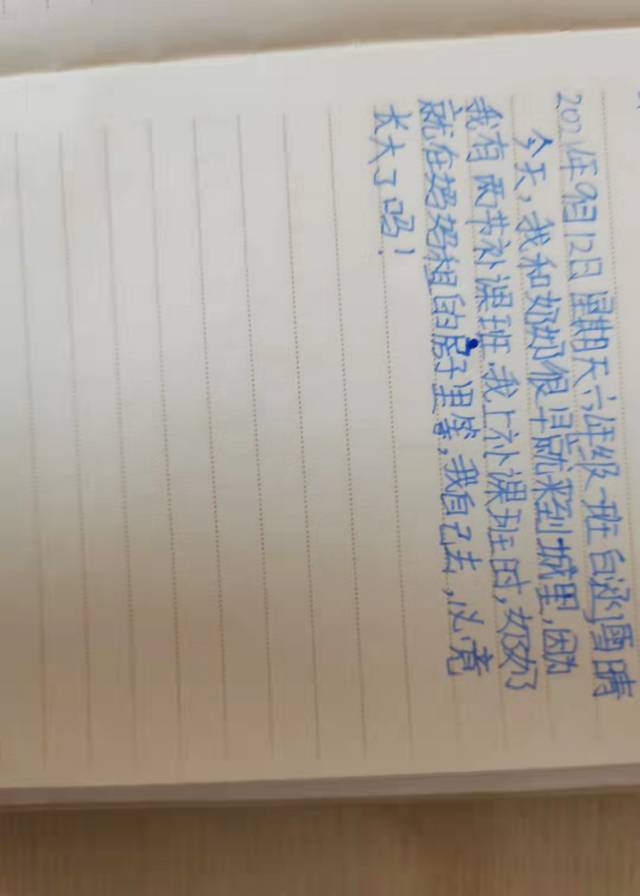 2021年9月12日 星期天 六年级一班 白涵雪晴
今天,我和奶奶很早就来到城里,因为
我有两节补课班.我上补课班时,奶奶
就在妈妈租的房子里等,我自己去,必竟
长大了吗!